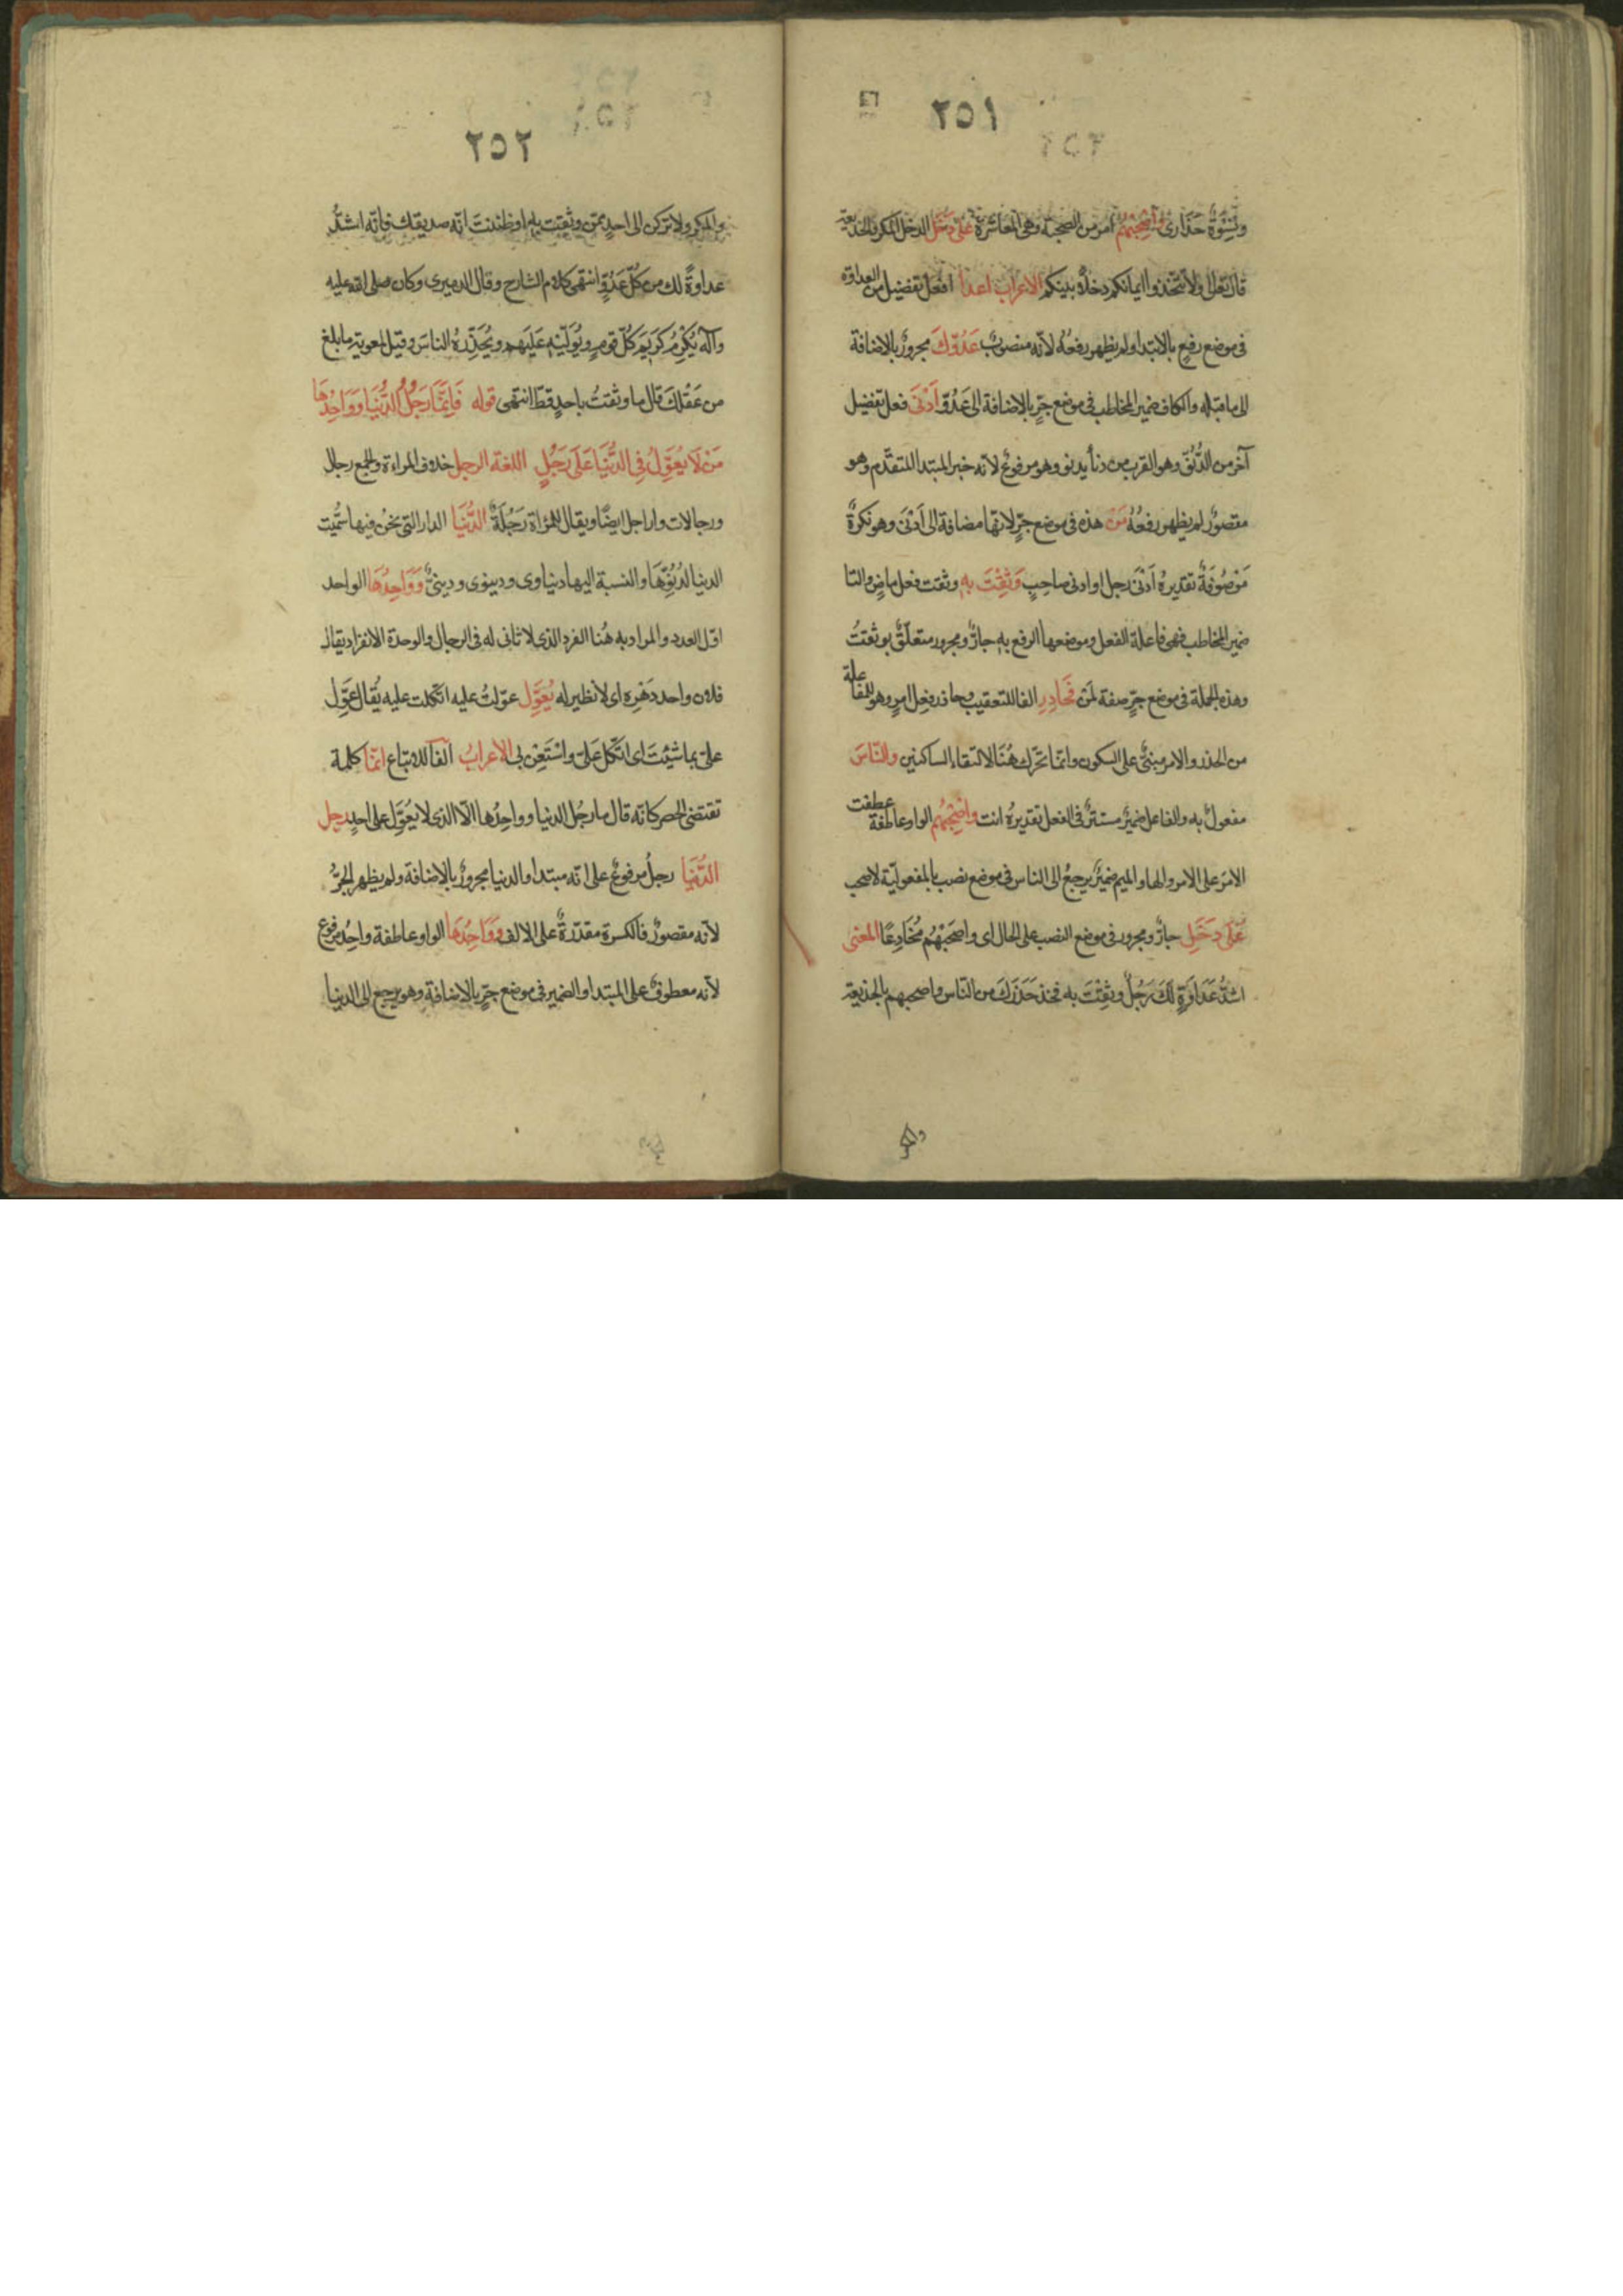 ٢٥١
ونسوة حذارى واصحبهم امر من الصحبة وهى المعاشرة على دخل الدخل المكر والخديعة
قال تعالى ولا تتخذوا ايمانكم دخلا بينكم الاعراب اعدا افعل تفضيل من العداوة
فى موضع رفع بالابتدا ولم يظهر رفعه لانه منصوب عَدُوّكَ مجرورٌ بالاضافة
الى ما قبله والكاف ضمير المخاطب فى موضع جرٍّ بالاضافة الى عَدُوّ اَدْنَى فعل تفضيل
آخر من الدُّنُوّ وهو القرب من دنا يدنو وهو مرفوعٌ لانه خبر المبتدا المتقدّم وهو
مقصورٌ لم يظهر رفعُهُ مَنْ هذه فى موضع جرٍّ لانها مضافة الى اَدْنَى وهو نكرةٌ
مَوْصُوفَةٌ تقديره اَدْنَى رجل او ادنى صاحِبٍ وَثِقْتَ بِهِ وثقت فعل ماضٍ والتا
ضمير المخاطب فهى فاعلة الفعل وموضعها الرفع به جارٌّ ومجرور متعلّقٌ بوثقتُ
وهذه الجملة فى موضع جرٍّ صفة لمَن فَحَاذِرِ الفا للتعقيب وحاذر فعل امرٍ وهو للمفاعلة
من الحذر والامر مبنىٌّ على السكون وانّما تحرّك هُنَا لالتقاء الساكنين والنَّاسَ
مفعولٌ به والفاعل ضميرٌ مستترٌ فى الفعل تقديرهُ انت واصْحَبْهُمْ الواو عاطفة عطفت
الامرَ على الامر والها والميم ضميرٌ يرجعُ الى الناس فى موضع نصب بالمفعوليّة لاصحب
عَلَى دَخَلِ جارٌّ ومجرور فى موضع النصب على الحال اى واصْحَبْهُم مُخَادِعًا المعنى
اشدُّ عَدَاوَةٍ لَكَ رَجُلٌ وثِقْتَ به فخذ حَذَرَكَ من النّاس واصحبهم بالخذيعة
والمكر
٢٥٢
والمكر ولا تركن الى احدٍ ممّن وثقت به او ظننتَ انّه صديقك فانّه اشدُّ
عداوةً لك من كلّ عَدُوٍّ انتهى كلام الشارح وقال الدميرى وكان صلى الله عليه
وآله يُكْرِمُ كَرِيَم كُلِّ قومٍ ويُوَلّيْهِ عَلَيهم ويُحَذِّرُهُ الناسَ وقيل لمعوية ما بلغ
من عَقْلِكَ قال ما وثقتُ باحدٍ قطّ انتهى قوله فَاِنَّمَا رَجُلُ الدُّنْيَا وَوَاحِدُهَا
مَنْ لَا يُعَوِّلُ فِى الدُّنْيَا عَلَى رَجُلٍ اللغة الرجل خلاف المراءة والجمع رجال
ورجالات واراجل ايضًا ويقال للمرْاة رَجُلَةٌ الدُّنْيَا الدار التى نحنُ فيها سُمّيت
الدنيا لدُنُوِّهَا والنسبة اليها دنياوى ودنيوى ودينىٌّ وَوَاحِدُهَا الواحد
اوّل العدد والمراد به هُنا الفرد الذى لا ثانى له فى الرجال والوحدة الانفراد يقال
فلان واحد دَهْرِهِ اى لا نظير له يُعَوِّل عوّلتُ عليه اتّكلت عليه يُقال عَوِّل
علىَّ بما شِيْتَ اى اتَّكل عَلىَّ واسْتَعِن بى الاعرابُ الفا للاتباع انّما كلمة
تقتضى الحصر كانّه قال ما رجُل الدنيا وواحِدُها الّا الذى لا يُعَوِّل على احدٍ رجل
الدُّنْيَا رجلُ مرفوعٌ على انّه مبتدا والدنيا مجرورٌ بالاضافة ولم يظهر الجرُّ
لانّه مقصورٌ فالكسرة مقدّرةٌ على الالف وَوَاحِدُهَا الواو عاطفة واحِدُ مرفوع
لانه معطوفٌ على المبتدا والضمير فى موضع جرٍّ بالاضافة وهو يرجع الى الدنيا